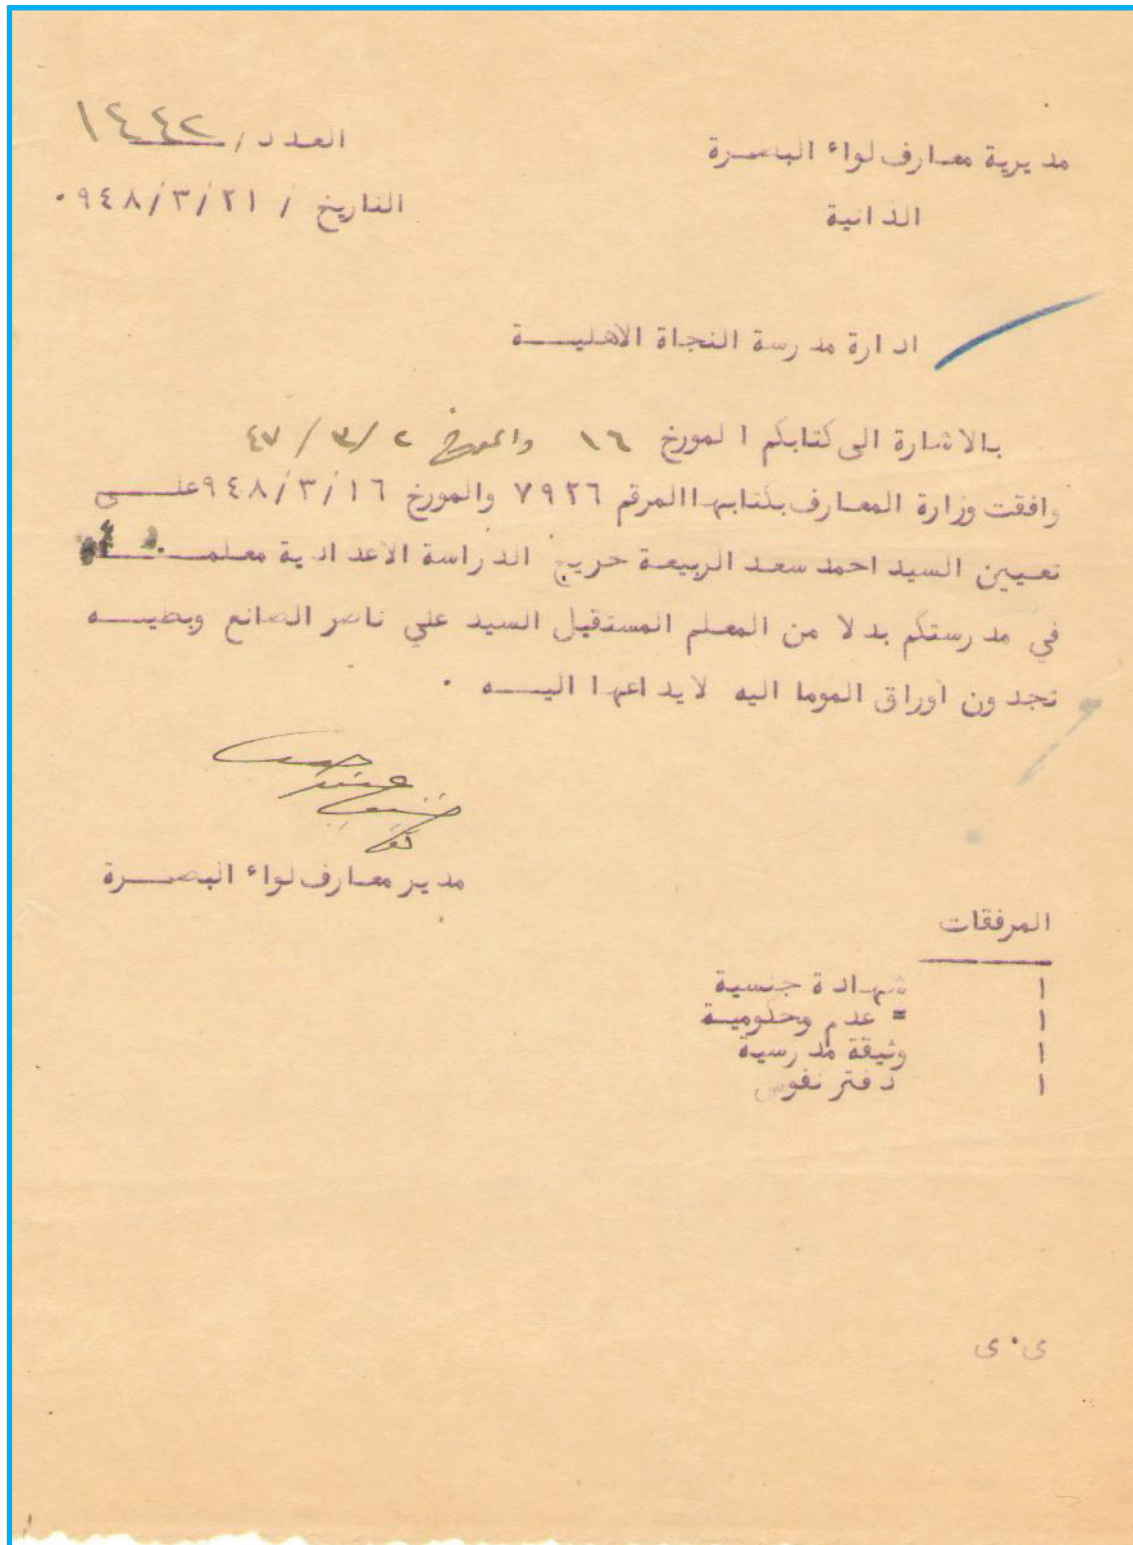 مديرية معارف لواء البصرة
الذاتية
العدد / ١٤٤٢
التاريخ / ٢١/٣/٩٤٨٠
ادارة مدرسة النجاة الاهليـــة
بالاشارة الى كتابكم المورخ ١٦ والمورخ ٢/٣/٤٧
وافقت وزارة المعارف بكتابها المرقم ٧٩٢٦ والمورخ ١٦/٣/٩٤٨ علـــى
تعيين السيد احمد سعد الربيعة خريج الدراسة الاعدادية معلمـــا
في مدرستكم بدلا من المعلم المستقيل السيد علي ناصر الصانع وبطيـــه
تجدون اوراق الموما اليه لايداعها اليـــه ٠
مدير معارف لواء البصـــرة
المرفقات
١ شهادة جنسية
١ = عدم محكومية
١ وثيقة مدرسية
١ دفتر نفوس
ى٠ى